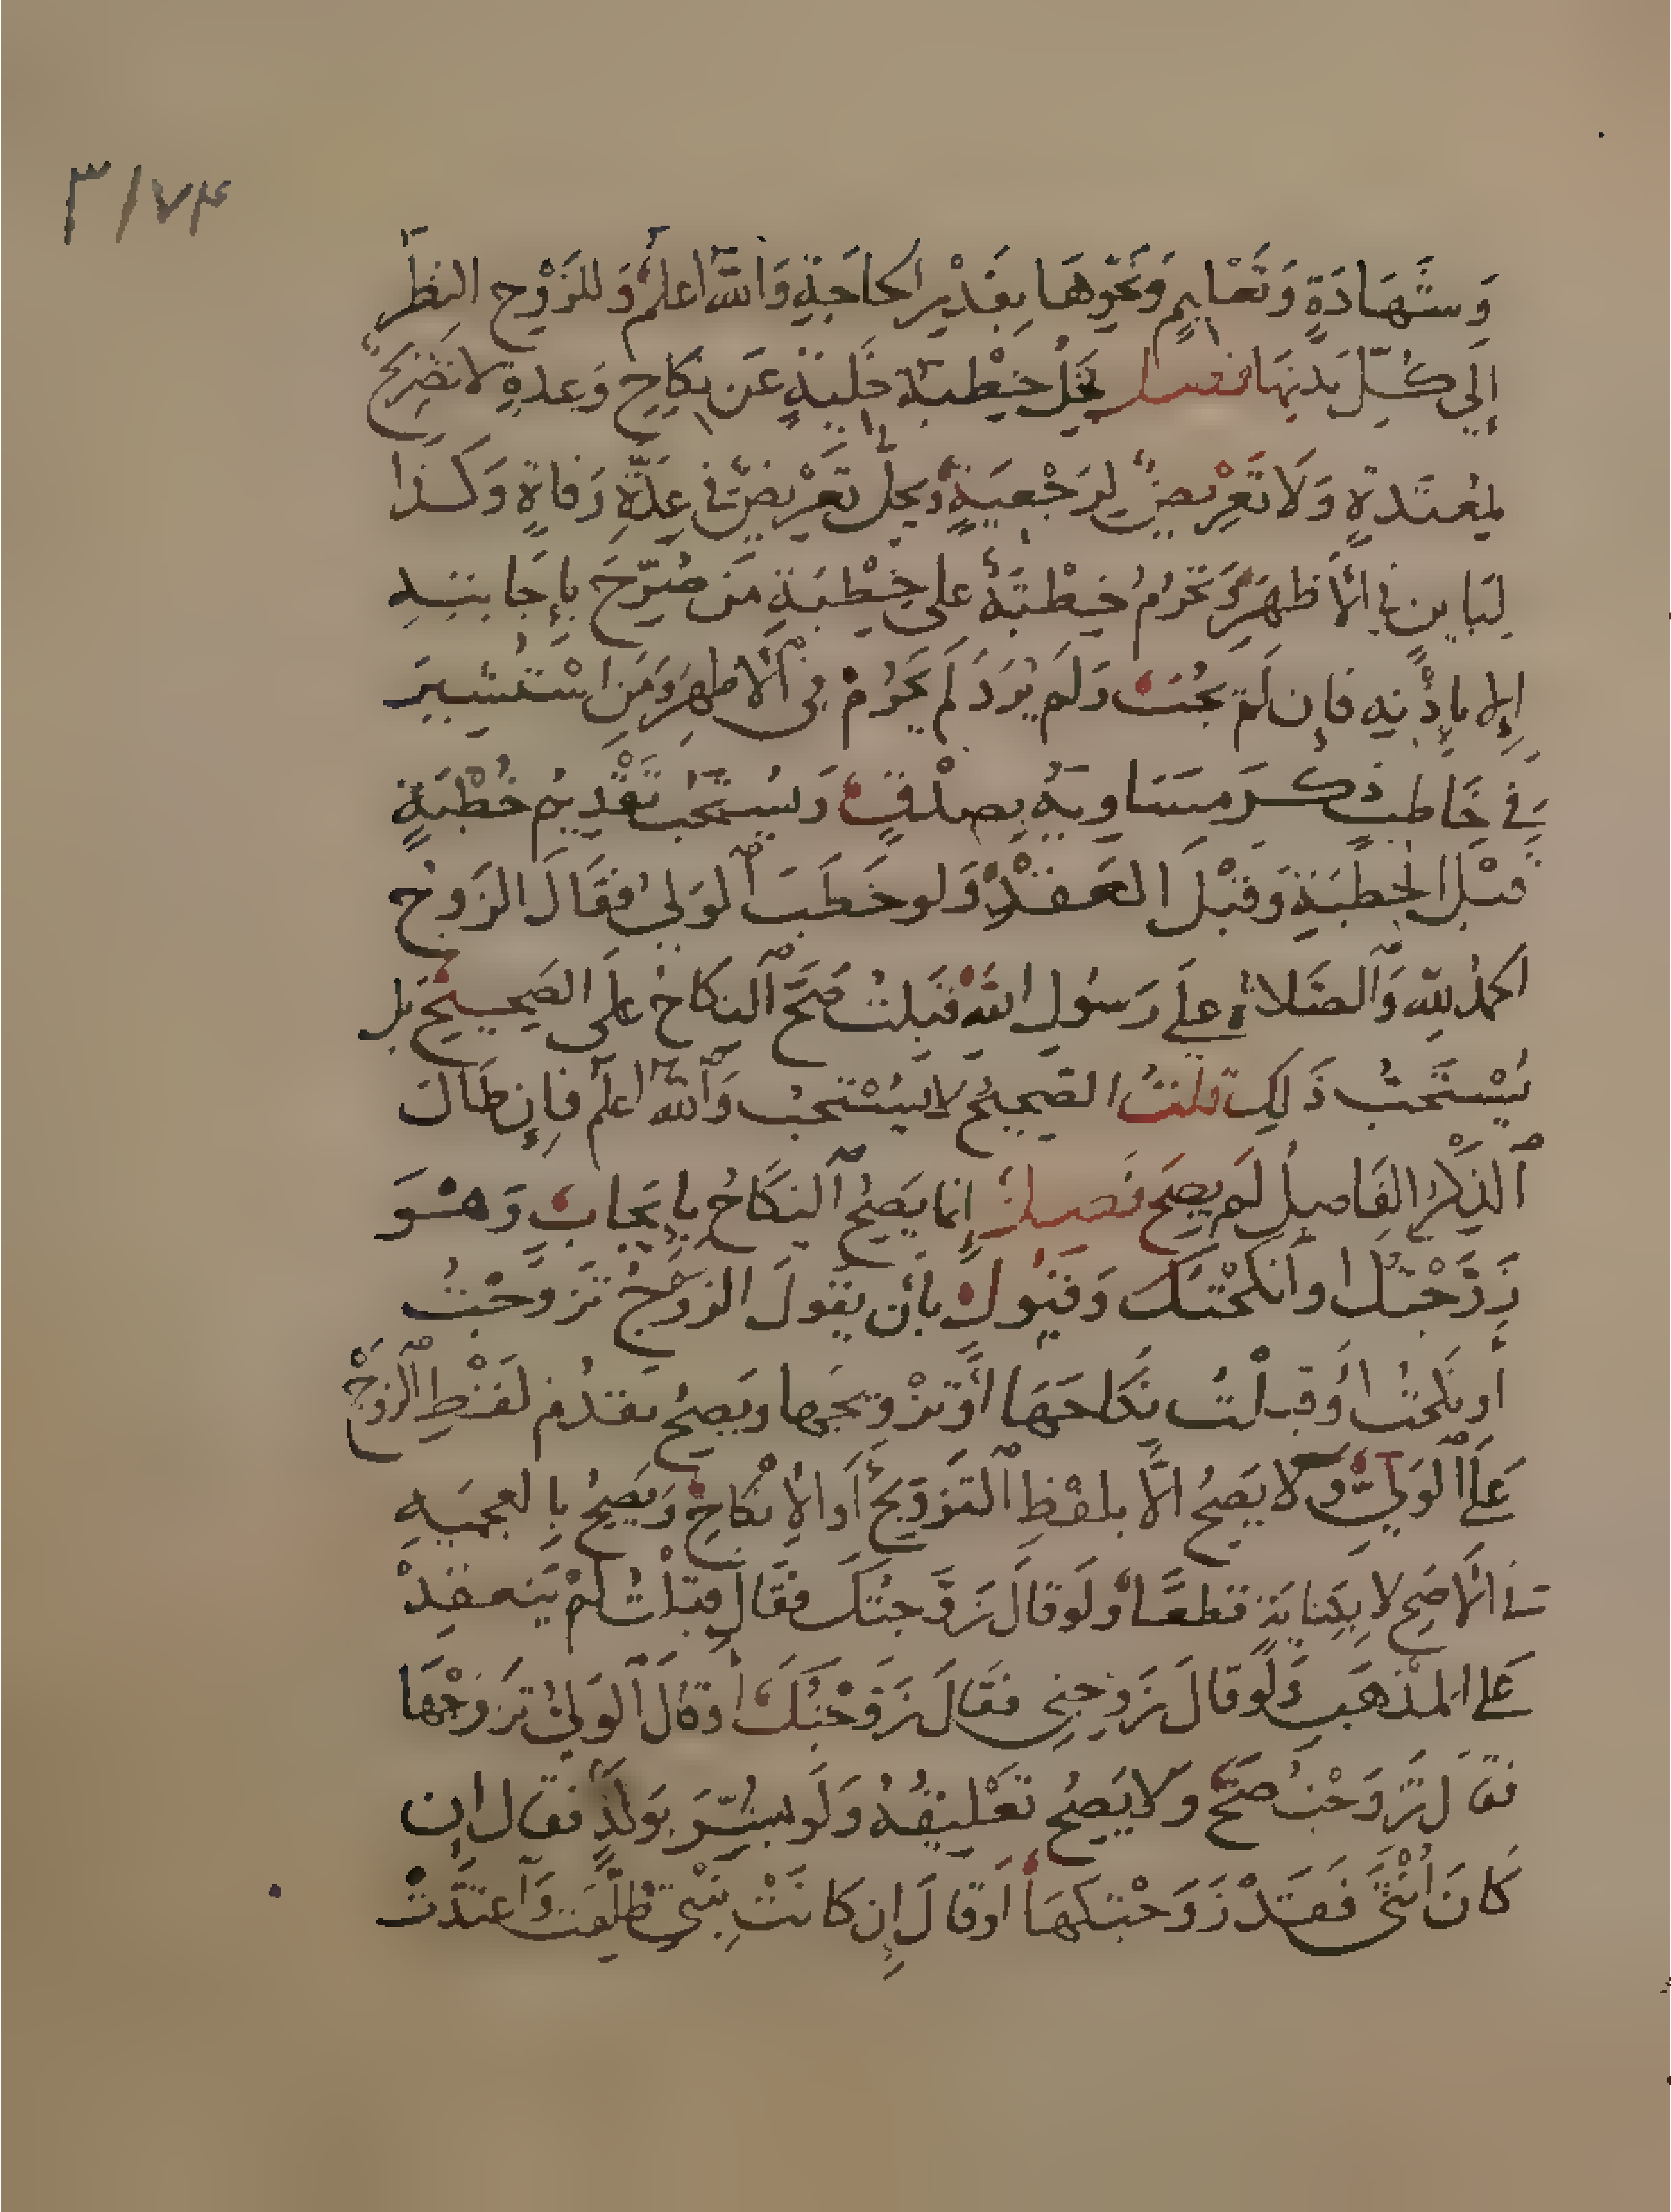 ٣/٧٤
وَشَهَادَةٍ وَتَعْلِيمٍ وَنَحْوِهَا بِقَدْرِ الحاجَةِ وَاللهُ اعلمُ وَللزَوْجِ النظَرُ
إلَى كُلِّ بَدَنِهَا فصل تحلُّ خِطْبَة خَلِيَّةٍ عَن نِكَاحٍ وَعِدةٍ لا تصْرِيحٌ
لمُعتدةٍ وَلَا تَعْرِيضٌ لِرَجْعِيَةٍ وَيحلُّ تعَرْيضٌ فى عِدَّةِ وَفاةٍ وَكَذَا
لِبَاينٍ في الأظهَرِ وَتَحْرُمُ خِطْبَةٌ على خِطْبَةِ مَن صُرِّحَ بإِجَابتِهِ
إلا بإِذْنِهِ فَإن لَمْ يجُبْ وَلَم يُرَدَ لَم يَحْرُمْ في الأظهرِ وَمَنِ اسْتُشيرَ
فِي خَاطبٍ ذكَرَ مسَاوِيَهُ بِصِدْقٍ وَيُستَحَبُّ تَقْدِيمُ خُطْبَةٍ
قَبْلَ الخِطبَةِ وَقَبْلَ العَقْدِ وَلو خَطَبَ الوَلِيُ فَقَالَ الزَوجُ
الحمدُ للهِ وَالصَلاةُ علَى رَسُولِ اللهِ قَبِلتُ صَحَّ النِكاحُ عَلَى الصَحِيحِ بَل
يُسْتَحَبُّ ذَلِكَ قلتُ الصَحِيحُ لا يُسْتَحبُ وَاللهُ اعلم فَإن طَالَ
الذِكْرُ الفَاصِلُ لَم يصِحَ فَصلٌ إنما يَصِحُ النِكَاحُ بإِيجَابٍ وَهُوَ
زَوَّجْتُكَ اوأنكَحْتكَ وَقَبُولٍ بأن يَقولَ الزوْجُ تَزَوَّجْتُ
أو نكحتُ اوْ قبِلْتُ نِكَاحَهَا أَوْ تزْوِيجَها وَيَصِحُ تقدُم لَفْظِ الزوجْ
عَلَى الوَلِيِّ وَلا يَصِحُ الَّا بلفظِ التَزوِيجِ أَو الإنكاحِ وَيَصِحُ بِالعجميَهِ
في الأَصَحِ لا بِكِنايَةٍ قطعًا وَلَو قالَ زَوَّجتُكَ فقَالَ قبلتُ لَمْ يَنعقِدْ
عَلَى المذهَبِ وَلَو قالَ زَوِجنِي فقَالَ زَوَّجْتُكَ أَو قالَ الوَليُ تزَوجْهَا
فقَالَ تزَوَجْتُ صَحَّ وَلا يَصِحُ تَعْلِيقُهُ وَلَو بُشِّرَ بوَلدٍ فقالَ إن
كانَ أُنْثَى فَقَدْ زَوَجْتكَهَا أَو قالَ إن كانَتْ بِنْتِي طُلِّقَت وَاعتدَّتْ